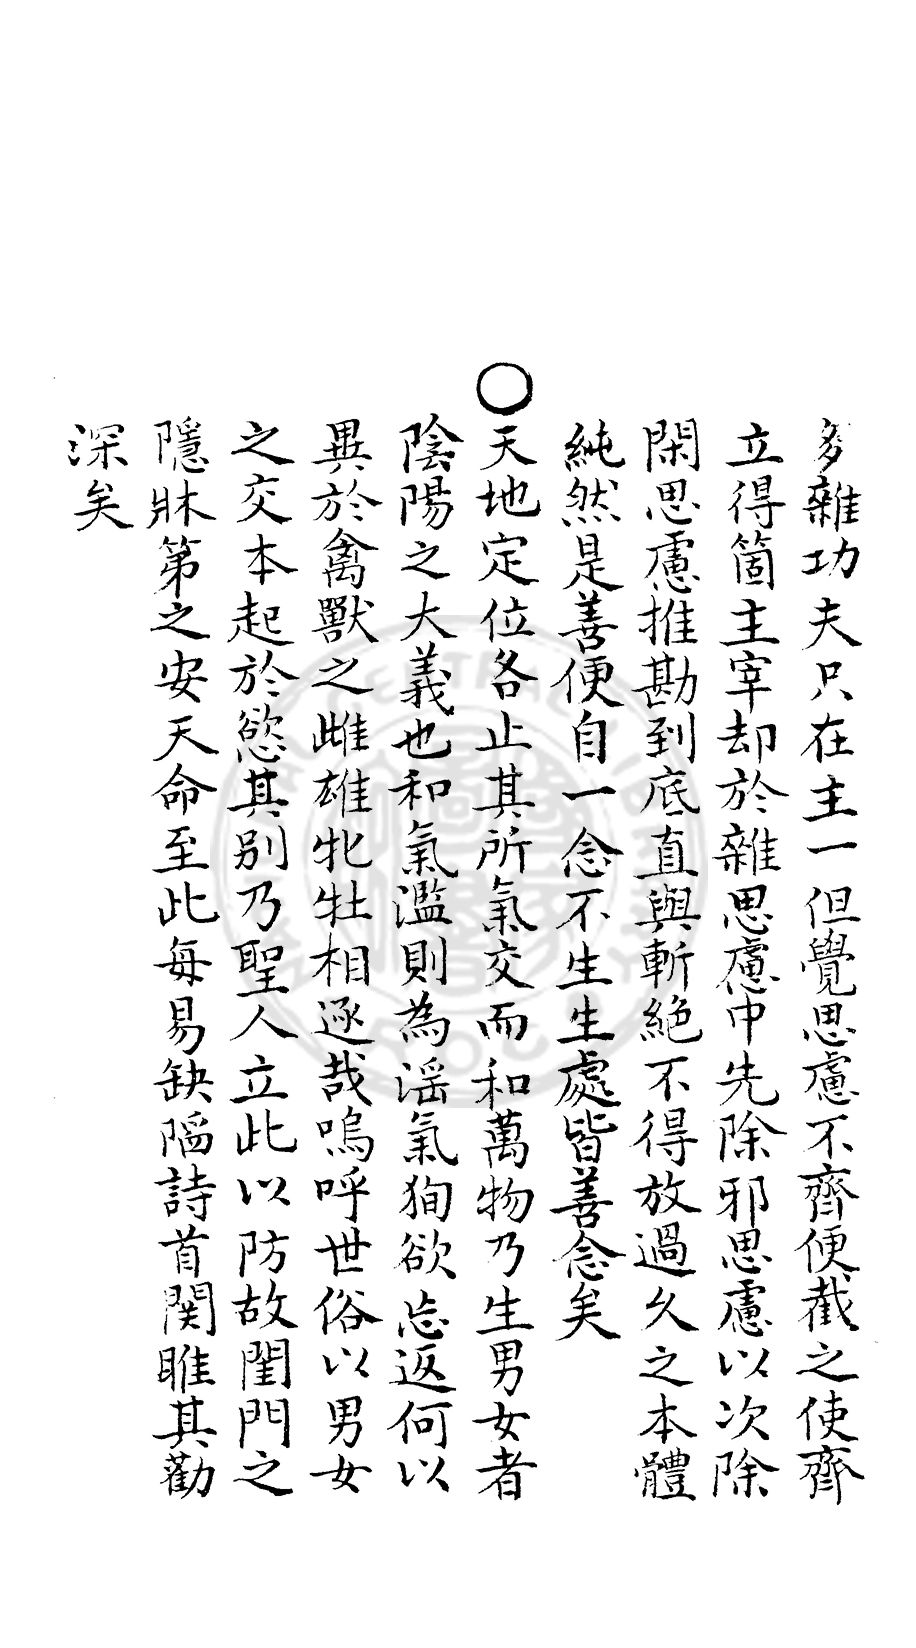 多雜功夫只在主一但覺思慮不齊便截之使齊
立得箇主宰却於雜思慮中先除邪思慮以次除
閑思慮推勘到底直與斬絕不得放過久之本體
純然是善便自一念不生生處皆善念矣
○天地定位各止其所氣交而和萬物乃生男女者
陰陽之大義也和氣濫則為淫氣狥欲忘返何以
異於禽獸之雌雄牝牡相逐哉嗚呼世俗以男女
之交本起於慾其別乃聖人立此以防故閨門之
隱牀第之安天命至此每易缺陷詩首関雎其勸
深矣